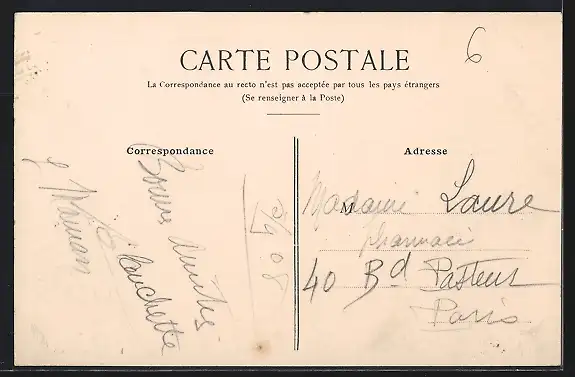 6
CARTE POSTALE
La Correspondance au recto n'est pas acceptée par tous les pays étrangers
(Se renseigner à la Poste)
Correspondance
Adresse
Bonnes Amitiés
Maman
2/9 08
M
Madame Laure
pharmacie
40 Bd Pasteur
Paris